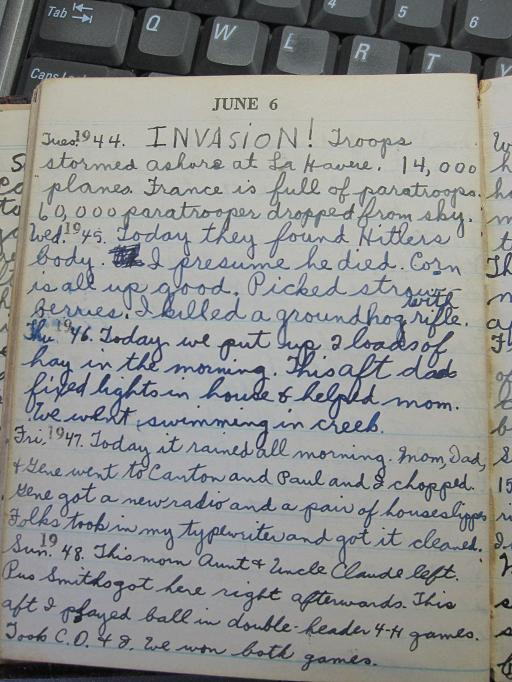 Tab
Q
W
E
R
T
4
5
6
Caps Lock
JUNE 6
Tues. 1944. INVASION! Troops
stormed ashore at La Havere. 14,000
planes. France is full of paratroops.
60,000 paratrooper dropped from sky.
Wed. 1945. Today they found Hitlers
body. I presume he died. Corn
is all up good. Picked straw-
berries. I killed a groundhog with rifle.
Thu. 1946. Today we put up 2 loads of
hay in the morning. This aft dad
fixed lights in house & helped mom.
We went swimming in creek.
Fri. 1947. Today it rained all morning. Mom, Dad,
& Gene went to Canton and Paul and I chopped.
Gene got a new radio and a pair of houseslippers
Folks took in my typewriter and got it cleaned.
Sun. 1948. This morn Aunt & Uncle Claude left.
Rus Smiths got here right afterwards. This
aft I played ball in double-header 4-H games.
Took C.D. & J. We won both games.